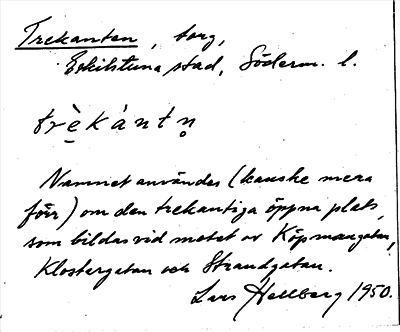 Trekanten, torg,
Eskilstuna stad, Söderm. l.
trè̩kántn̥
Namnet användes (kanske mera
förr) om den trekantiga öppna plats,
som bildas vid mötet av Köpmangatan,
Klostergatan och Strandgatan.
Lars Hellberg 1950.